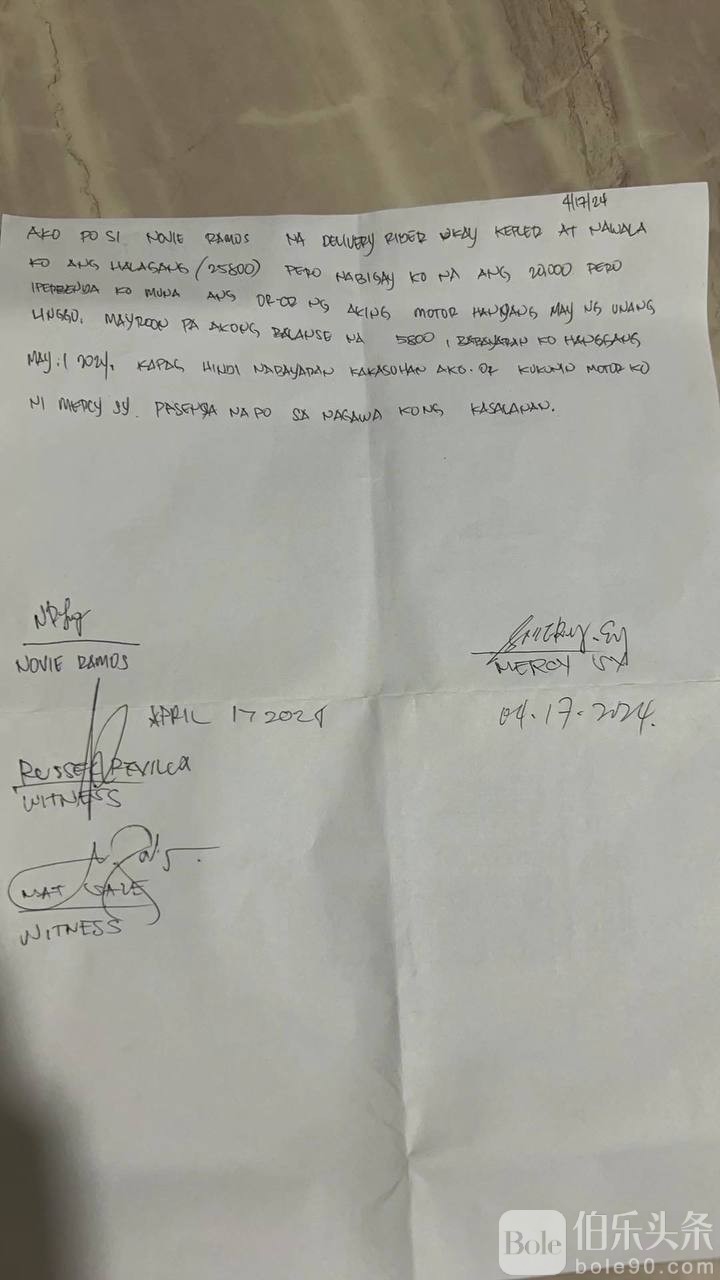 4/17/24
AKO PO SI NOVIE RAMOS NA DELIVERY RIDER KAY KEPLER AT NAWALA
KO ANG HALAGANG (25800) PERO NABIGAY KO NA ANG 20,000 PERO
KO MUNA ANG OR-CR NG AKING MOTOR HANGGANG MAY NG UNANG
LINGGO. MAYROON PA AKONG BALANSE NA 5800, BABAYARAN KO HANGGANG
MAY.1 2024. KAPAG HINDI NABAYARAN KAKASUHAN AKO. OR KUKUNIN MOTOR KO
NI MERCY SY. PASENSYA NA PO SA NAGAWA KONG KASALANAN.
NOVIE RAMOS
MERCY SY
APRIL 17 2024
04.17.2024.
WITNESS
WITNESS
Bole 伯乐头条
bole90.com